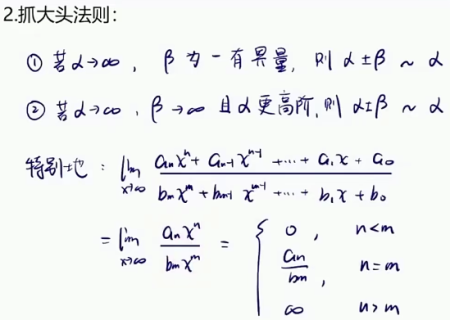 2.抓大头法则：
① 若 α→∞， β 为一有界量，则 α±β ~ α
② 若 α→∞，β→∞ 且 α 更高阶，则 α±β ~ α
特别地： lim_{x→∞} (a_n x^n + a_{n-1} x^{n-1} + ⋯ + a_1 x + a_0) / (b_m x^m + b_{m-1} x^{m-1} + ⋯ + b_1 x + b_0)
= lim_{x→∞} (a_n x^n) / (b_m x^m) = { 0， n<m
a_n / b_m， n=m
∞ n>m